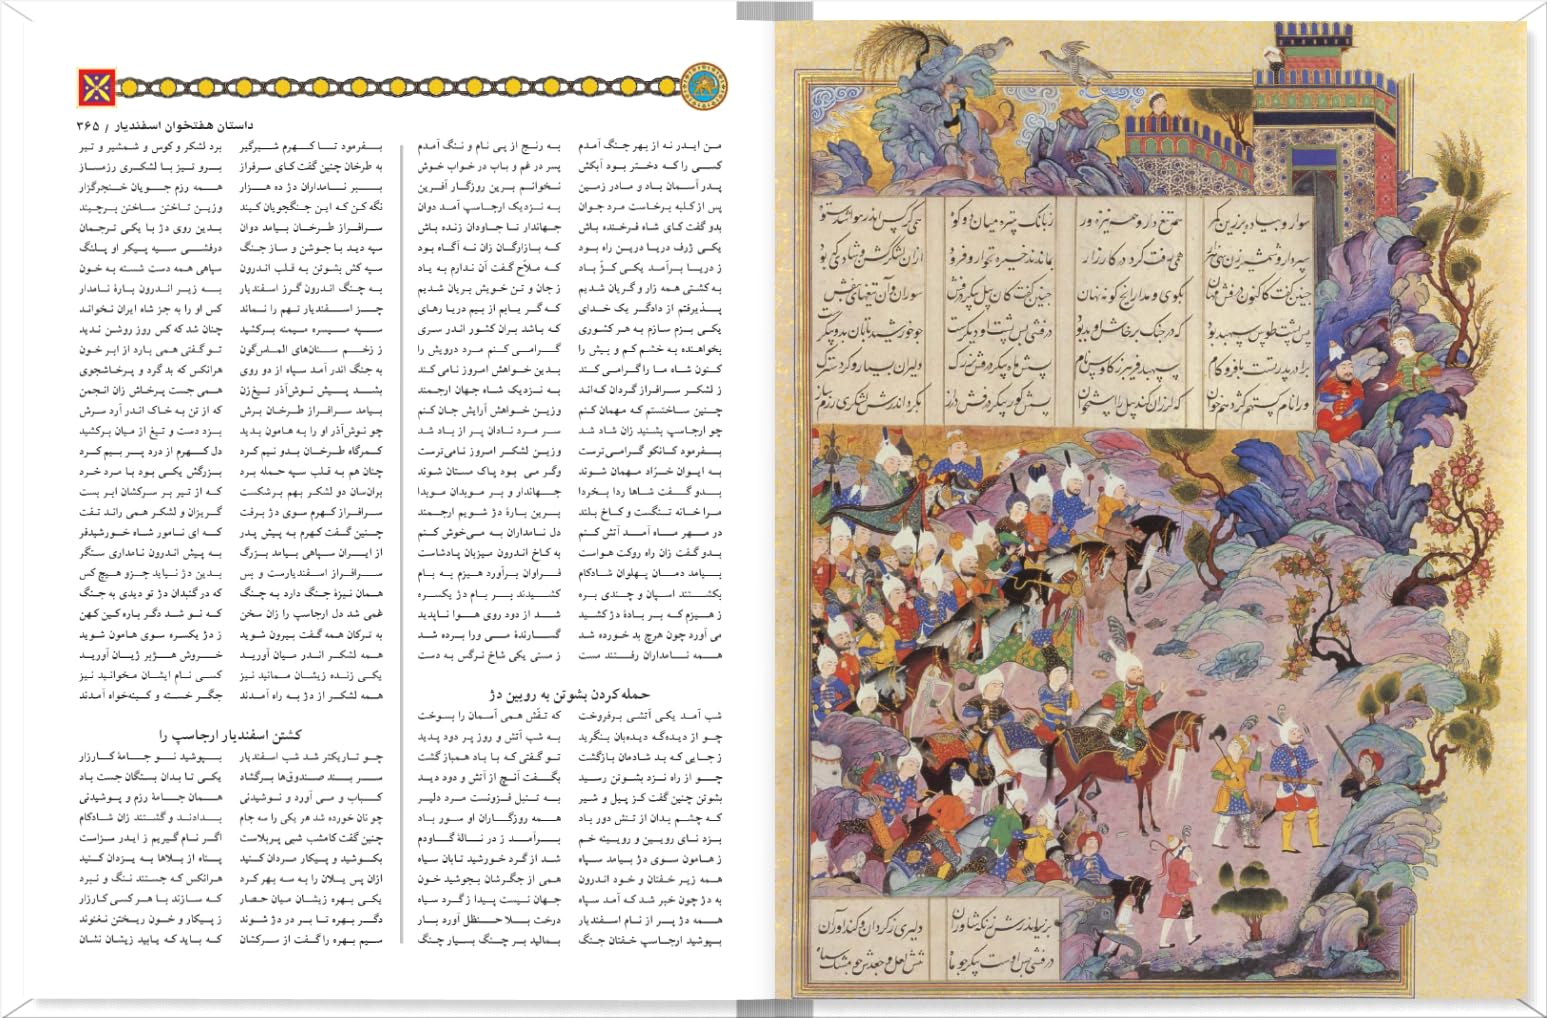 سوار و پیاده بزرین کمر همه تیغ دار و همه نیزه ور ز بانگ تبیره میان دو کوه همی کرگس اندر هوا شد ستوه
سپردار و شمشیرزن سی هزار همی رفت گرد در کارزار بماندند خیره تخوار و فرود ازان لشکر گشن و شادی که بود
چنین گفت کاکنون درفش مهان بگوی و مدار ایچ گونه نهان چنین گفت کان پیل پیکر درفش سواران و آن تیغهای بنفش
پس پشت طوس سپهبد بود که در جنگ پرخاش او بد بود درفشی پس پشت او دیگرست چو خورشید تابان بدو پیکرست
برادر پدرتست با فر و کام سپهبد فریبرز کاوس نام پسش ماه پیکر درفش بزرگ دلیران بسیار و گردی سترگ
ورا نام گستهم گژدهم خوان که لرزان کند پیل را استخوان پسش گور پیکر درفش دراز بگرد اندرش لشکری رزم ساز
بزیر اندرش زنگه شاوران دلیری ز گردان و گنداوران
درفشی پس اوست پیکر چو ماه تنش لعل و جعدش چو مشک سیاه
داستان هفتخوان اسفندیار / ۳۶۵
من ایدر نه از بهر جنگ آمدم به رنج از پی نام و ننگ آمدم
کسی را که دختر بود آبکش پسر در غم و باب در خواب خوش
پدر آسمان باد و مادر زمین نخوانم برین روزگار آفرین
پس از کلبه برخاست مرد جوان به نزدیک ارجاسپ آمد دوان
بدو گفت کای شاه فرخنده باش جهاندار تا جاودان زنده باش
یکی ژرف دریا درین راه بود که بازارگان زان نه آگاه بود
ز دریا برآمد یکی کژ باد که ملاح گفت آن ندارم به یاد
به کشتی همه زار و گریان شدیم ز جان و تن خویش بریان شدیم
پذیرفتم از دادگر یک خدای که گر یابم از بیم دریا رهای
یکی بزم سازم به هر کشوری که باشد بران کشور اندر سری
بخواهنده به خشم کم و بیش را گرامی کنم مرد درویش را
کنون شاه ما را گرامی کند بدین خواهش امروز نامی کند
ز لشکر سرافراز گردان که‌اند به نزدیک شاه جهان ارجمند
چنین ساختستم که مهمان کنم وزین خواهش آرایش جان کنم
چو ارجاسپ بشنید زان شاد شد سر مرد نادان پر از باد شد
بفرمود کانکو گرامی‌ترست وزین لشکر امروز نامی‌ترست
به ایوان خراد مهمان شوند وگر می بود پاک مستان شوند
بدو گفت شاها ردا بخردا جهاندار و بر موبدان موبدا
مرا خانه تنگست و کاخ بلند برین باره دژ شویم ارجمند
در مهر ماه آمد آتش کنم دل نامداران به می‌خوش کنم
بدو گفت زان راه روکت هواست به کاخ اندرون میزبان پادشاست
بیامد دمان پهلوان شادکام فراوان برآورد هیزم به بام
بکشتند اسپان و چندی بره کشیدند بر بام دژ یکسره
ز هیزم که بر بادهٔ دژ کشید شد از دود روی هوا ناپدید
می آورد چون هرچ بد خورده شد گسارندهٔ می ورا برده شد
همه نامداران رفتند مست ز مستی یکی شاخ نرگس به دست
حمله‌کردن بشوتن به رویین دژ
شب آمد یکی آتشی برفروخت که تفش همی آسمان را بسوخت
چو از دیده‌گه دیده‌بان بنگرید به شب آتش و روز پر دود پدید
ز جایی که بد شادمان بازگشت تو گفتی که با باد همباز گشت
چو از راه نزد بشوتن رسید بگفت آنچ از آتش و دود دید
بشوتن چنین گفت کز پیل و شیر به تنبل فزونست مرد دلیر
که چشم بدان از تنش دور باد همه روزگاران او سور باد
بزد نای رویین و رویینه خم برآمد ز در نالهٔ گاودم
ز هامون سوی دژ بیامد سپاه شد از گرد خورشید تابان سیاه
همه زیر خفتان و خود اندرون همی از جگرشان بجوشید خون
به دژ چون خبر شد که آمد سپاه جهان نیست پیدا ز گرد سیاه
همه دژ پر از نام اسفندیار درخت بلا حنظل آورد بار
بپوشید ارجاسپ خفتان جنگ بمالید بر چنگ بسیار چنگ
بفرمود تا کهرم شیرگیر برد لشکر و کوس و شمشیر و تیر
به طرخان چنین گفت کای سرفراز برو تیز با لشکری رزمساز
ببر نامداران دژ ده هزار همه رزم جویان خنجرگزار
نگه کن که این جنگجویان کیند وزین تاختن ساختن برچیند
سرافراز طرخان بیامد دوان بدین روی دژ با یکی ترجمان
سپه دید با جوشن و ساز جنگ درفشی سیه پیکر او پلنگ
سپه کش بشوتن به قلب اندرون سپاهی همه دست شسته به خون
به چنگ اندرون گرز اسفندیار به زیر اندرون بارهٔ نامدار
جز اسفندیار تهم را نماند کس او را به جز شاه ایران نخواند
سپه میسره میمنه برکشید چنان شد که کس روز روشن ندید
ز زخم سنان‌های الماس‌گون تو گفتی همی بارد از ابر خون
به جنگ اندر آمد سپاه از دو روی هرانکس که بد گرد و پرخاشجوی
بشد پیش نوش‌آذر تیغ‌زن همی جست پرخاش زان انجمن
بیامد سرافراز طرخان برش که از تن به خاک اندر آرد سرش
چو نوش‌آذر او را به هامون بدید بزد دست و تیغ از میان برکشید
کمرگاه طرخان بدو نیم کرد دل کهرم از درد پر بیم کرد
چنان هم به قلب سپه حمله برد بزرگش یکی بود با مرد خرد
بران‌سان دو لشکر بهم برشکست که از تیر بر سرکشان ابر بست
سرافراز کهرم سوی دژ برفت گریزان و لشکر همی راند تفت
چنین گفت کهرم به پیش پدر که ای نامور شاه خورشیدفر
از ایران سپاهی بیامد بزرگ به پیش اندرون نامداری سترگ
سرافراز اسفندیارست و بس بدین دژ نیاید جزو هیچ کس
همان نیزهٔ جنگ دارد به چنگ که در گنبدان دژ تو دیدی به جنگ
غمی شد دل ارجاسپ را زان سخن که نو شد دگر باره کین کهن
به ترکان همه گفت بیرون شوید ز دژ یکسره سوی هامون شوید
همه لشکر اندر میان آورید خروش هژبر ژیان آورید
یکی زنده زیشان ممانید نیز کسی نام ایشان مخوانید نیز
همه لشکر از دژ به راه آمدند جگر خسته و کینه‌خواه آمدند
کشتن اسفندیار ارجاسپ را
چو تاریکتر شد شب اسفندیار بپوشید نو جامهٔ کارزار
سر بند صندوق‌ها برگشاد یکی تا بدان بستگان جست باد
کباب و می آورد و نوشیدنی همان جامهٔ رزم و پوشیدنی
چو نان خورده شد هر یکی را سه جام بدادند و گشتند زان شادکام
چنین گفت کامشب شبی پربلاست اگر نام گیریم ز ایدر سزاست
بکوشید و پیکار مردان کنید پناه از بلاها به یزدان کنید
ازان پس یلان را به سه بهر کرد هرانکس که جستند ننگ و نبرد
یکی بهره زیشان میان حصار که سازند با هر کسی کارزار
دگر بهره تا بر در دژ شوند ز پیکار و خون ریختن نغنوند
سیم بهره را گفت از سرکشان که باید که یابید زیشان نشان